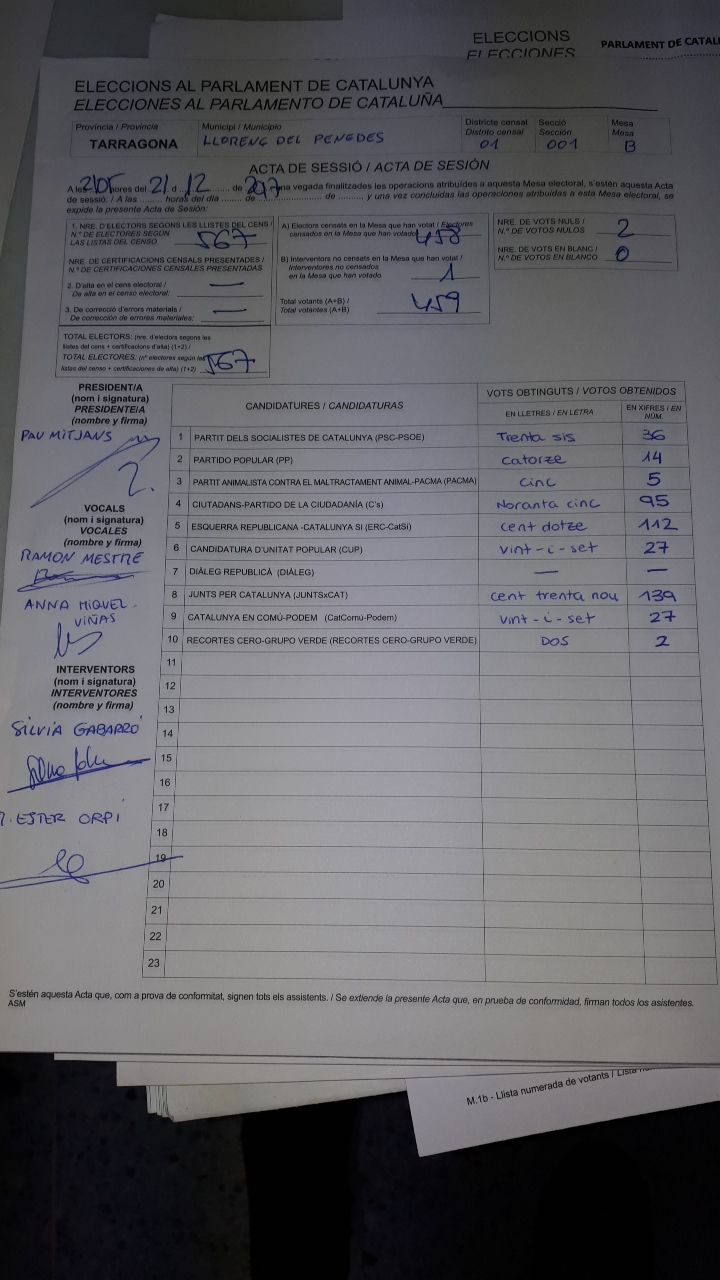 ELECCIONS
ELECCIONES
PARLAMENT DE CATAL
ELECCIONS AL PARLAMENT DE CATALUNYA
ELECCIONES AL PARLAMENTO DE CATALUÑA
Província / Provincia
TARRAGONA
Municipi / Municipio
LLORENÇ DEL PENEDES
Districte censal
Distrito censal
01
Secció
Sección
001
Mesa
Mesa
B
ACTA DE SESSIÓ / ACTA DE SESIÓN
A les hores del 21 d 12 de 2017 una vegada finalitzades les operacions atribuïdes a aquesta Mesa electoral, s'estén aquesta Acta
de sessió: / A las ......... horas del día ....... de ............... de .......... y una vez concluidas las operaciones atribuidas a esta Mesa electoral, se
expide la presente Acta de Sesión:
1. NRE. D'ELECTORS SEGONS LES LLISTES DEL CENS /
N.º DE ELECTORES SEGÚN
LAS LISTAS DEL CENSO
567
NRE. DE CERTIFICACIONS CENSALS PRESENTADES /
N.º DE CERTIFICACIONES CENSALES PRESENTADAS
2. D'alta en el cens electoral:
De alta en el censo electoral:
—
3. De correcció d'errors materials /
De corrección de errores materiales:
—
TOTAL ELECTORS: (nre. d'electors segons les
llistes del cens + certificacions d'alta) (1+2) /
TOTAL ELECTORES: (nº electores según las
listas del censo + certificaciones de alta) (1+2)
567
A) Electors censats en la Mesa que han votat / Electores
censados en la Mesa que han votado
458
B) Interventors no censats en la Mesa que han votat /
Interventores no censados
en la Mesa que han votado
1
Total votants (A+B) /
Total votantes (A+B)
459
NRE. DE VOTS NULS /
N.º DE VOTOS NULOS
2
NRE. DE VOTS EN BLANC /
N.º DE VOTOS EN BLANCO
0
PRESIDENT/A
(nom i signatura)
PRESIDENTE/A
(nombre y firma)
PAU MITJANS
VOCALS
(nom i signatura)
VOCALES
(nombre y firma)
RAMON MESTRE
ANNA MIQUEL
VIÑAS
INTERVENTORS
(nom i signatura)
INTERVENTORES
(nombre y firma)
SILVIA GABARRÓ
ESTER ORPÍ
CANDIDATURES / CANDIDATURAS
VOTS OBTINGUTS / VOTOS OBTENIDOS
EN LLETRES / EN LETRA
EN XIFRES / EN NÚM.
1 PARTIT DELS SOCIALISTES DE CATALUNYA (PSC-PSOE) Trenta sis 36
2 PARTIDO POPULAR (PP) catorze 14
3 PARTIT ANIMALISTA CONTRA EL MALTRACTAMENT ANIMAL-PACMA (PACMA) cinc 5
4 CIUTADANS-PARTIDO DE LA CIUDADANÍA (C's) Noranta cinc 95
5 ESQUERRA REPUBLICANA -CATALUNYA SI (ERC-CatSí) cent dotze 112
6 CANDIDATURA D'UNITAT POPULAR (CUP) vint-i-set 27
7 DIÀLEG REPUBLICÀ (DIÀLEG) — —
8 JUNTS PER CATALUNYA (JUNTSxCAT) cent trenta nou 139
9 CATALUNYA EN COMÚ-PODEM (CatComú-Podem) vint-i-set 27
10 RECORTES CERO-GRUPO VERDE (RECORTES CERO-GRUPO VERDE) DOS 2
11
12
13
14
15
16
17
18
19
20
21
22
23
S'estén aquesta Acta que, com a prova de conformitat, signen tots els assistents. / Se extiende la presente Acta que, en prueba de conformidad, firman todos los asistentes.
ASM
M.1b - Llista numerada de votants /